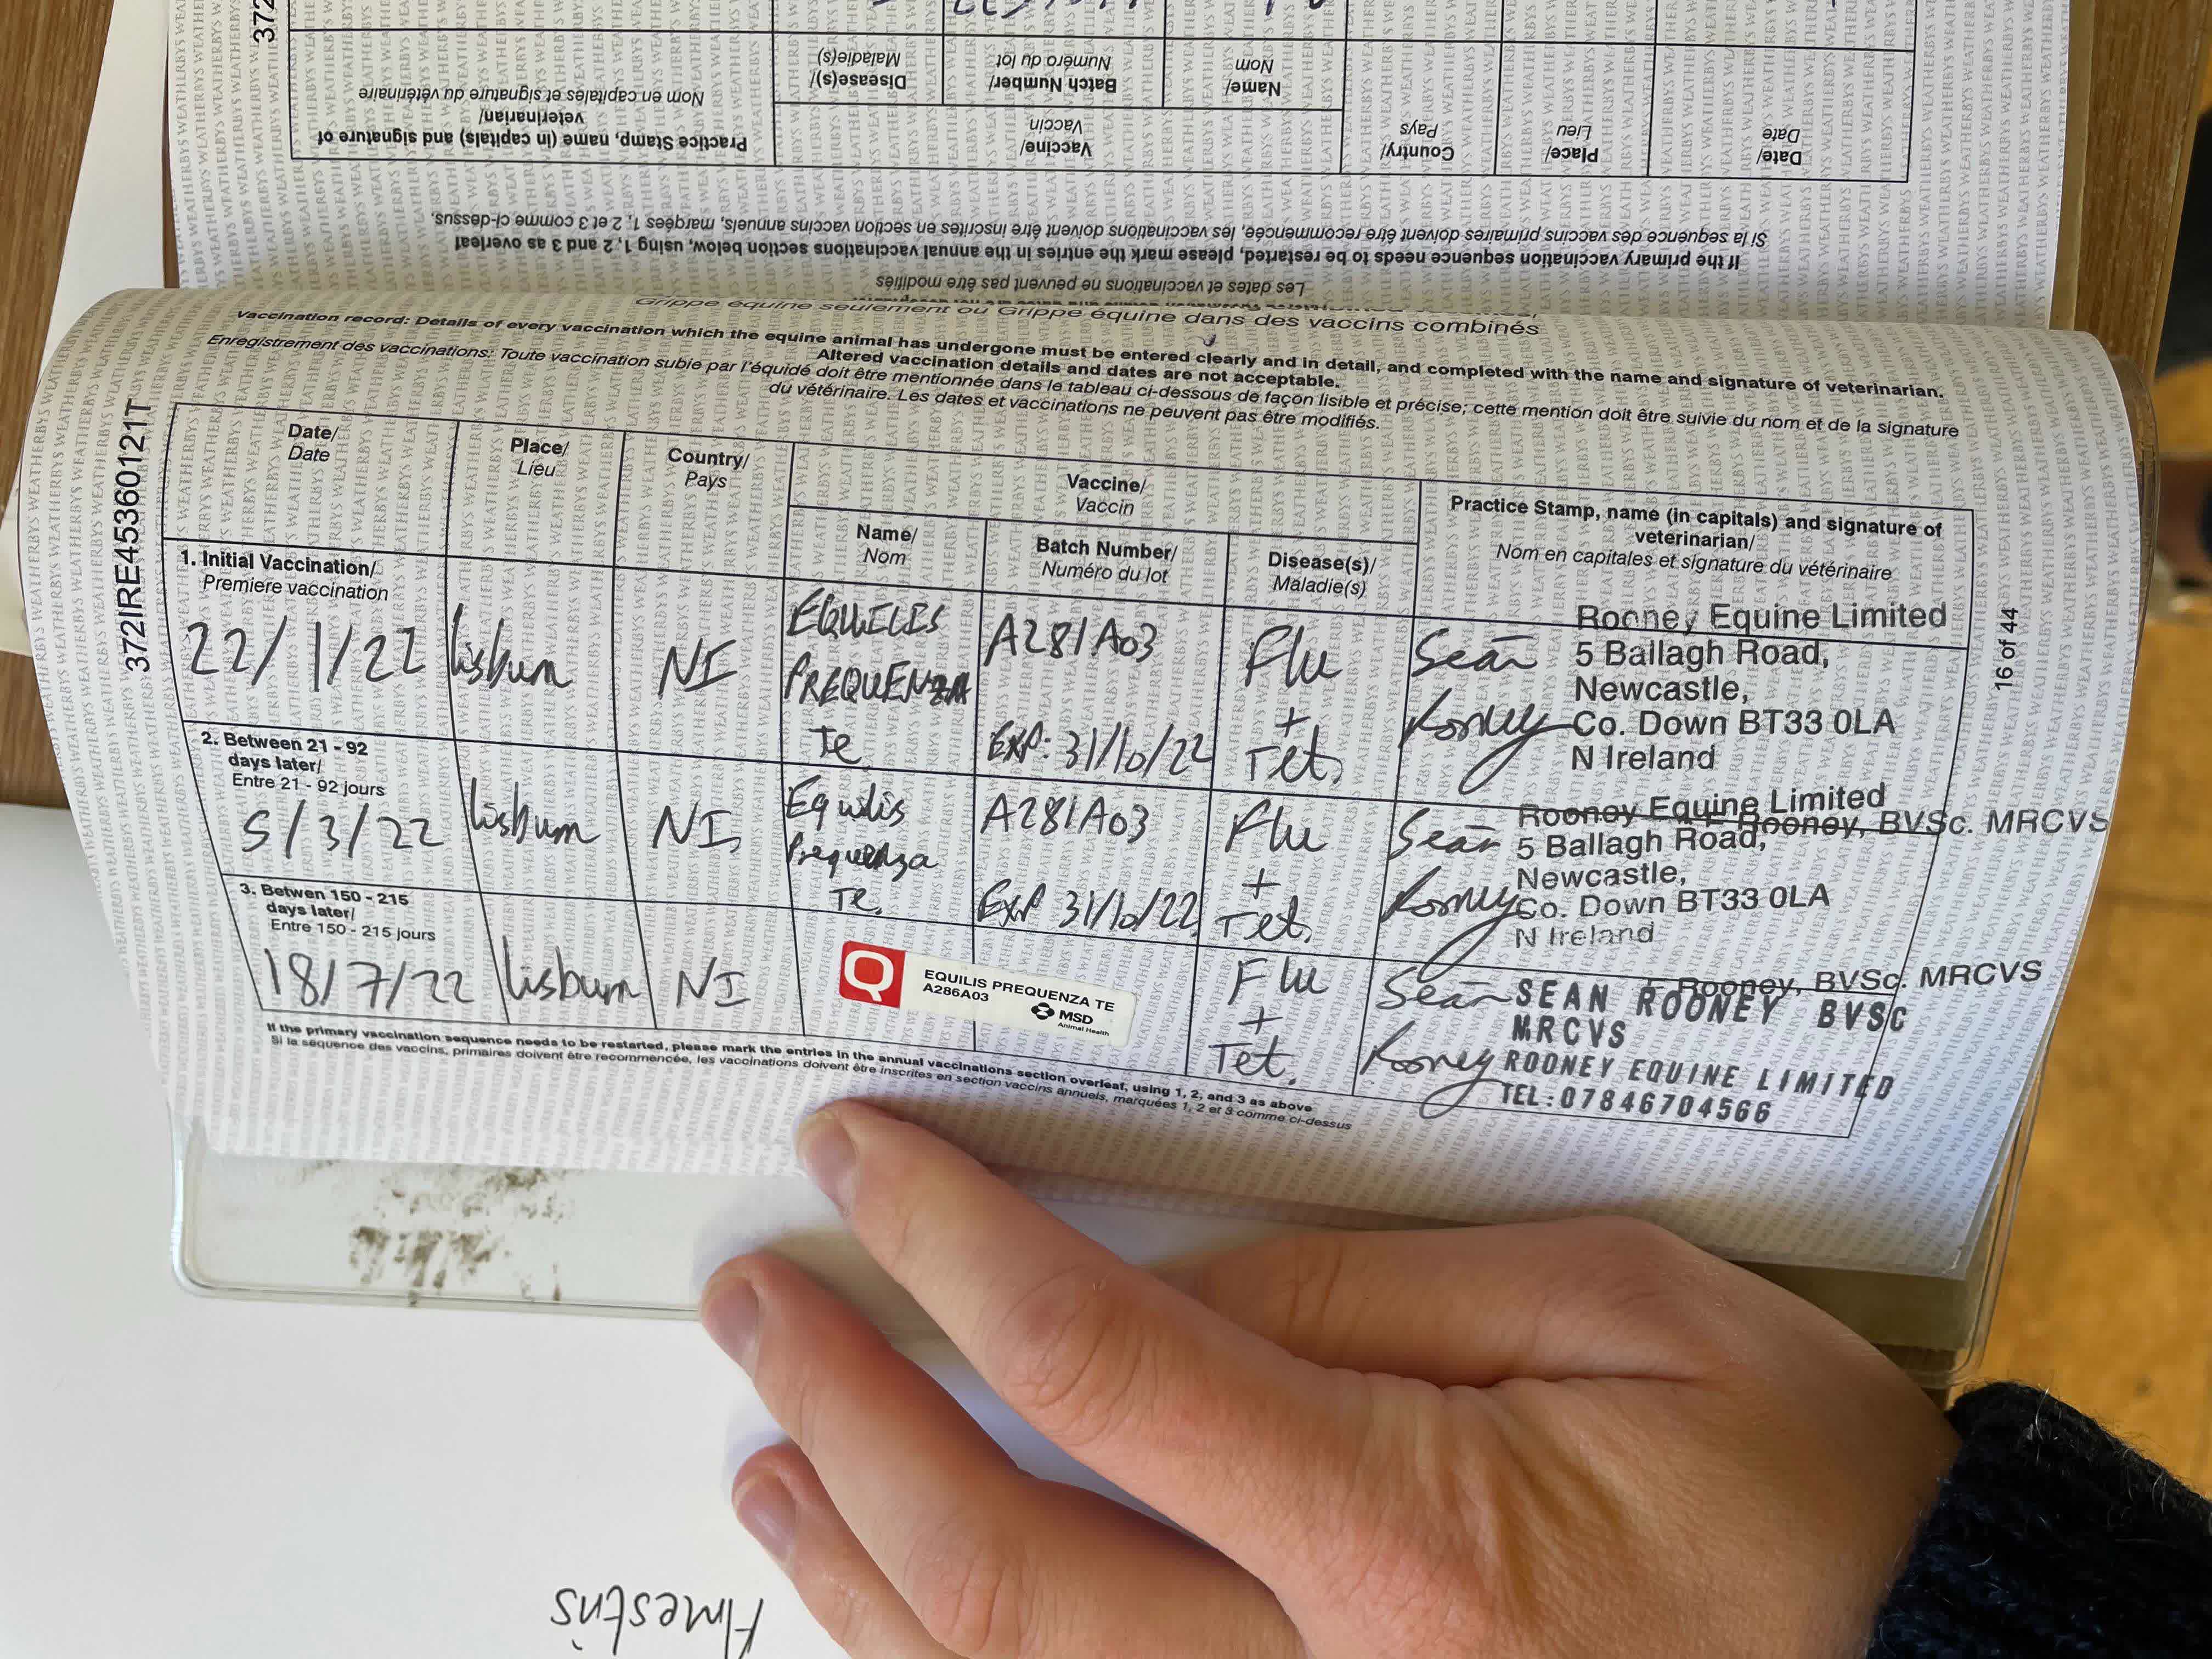 Practice Stamp, name (in capitals) and signature of
veterinarian/
Nom en capitales et signature du vétérinaire
Vaccine/
Vaccin
Disease(s)/
Maladie(s)
Batch Number/
Numéro du lot
Name/
Nom
Country/
Pays
Place/
Lieu
Date/
Date
If the primary vaccination sequence needs to be restarted, please mark the entries in the annual vaccinations section below, using 1, 2 and 3 as overleaf
Si la séquence des vaccins primaires doivent être recommencée, les vaccinations doivent être inscrites en section vaccins annuels, marqées 1, 2 et 3 comme ci-dessus.
Les dates et vaccinations ne peuvent pas être modifiés
Grippe équine seulement ou Grippe équine dans des vaccins combinés
Vaccination record: Details of every vaccination which the equine animal has undergone must be entered clearly and in detail, and completed with the name and signature of veterinarian.
Altered vaccination details and dates are not acceptable.
Enregistrement des vaccinations: Toute vaccination subie par l'équidé doit être mentionnée dans le tableau ci-dessous de façon lisible et précise; cette mention doit être suivie du nom et de la signature
du vétérinaire. Les dates et vaccinations ne peuvent pas être modifiés.
372IRE45360121T
Date/
Date
Place/
Lieu
Country/
Pays
Vaccine/
Vaccin
Name/
Nom
Batch Number/
Numéro du lot
Disease(s)/
Maladie(s)
Practice Stamp, name (in capitals) and signature of
veterinarian/
Nom en capitales et signature du vétérinaire
1. Initial Vaccination/
Premiere vaccination
22/1/22
lisburn
NI
EQUILIS
PREQUENZA
Te
A281A03
EXP: 31/10/22
Flu
+
Tet.
Seán
Rooney
Rooney Equine Limited
5 Ballagh Road,
Newcastle,
Co. Down BT33 0LA
N Ireland
Rooney, BVSc. MRCVS
2. Between 21 - 92
days later/
Entre 21 - 92 jours
5/3/22
lisburn
NI.
Equilis
Prequenza
Te.
A281A03
EXP 31/10/22
Flu
+
Tet.
Seán
Rooney
Rooney Equine Limited
5 Ballagh Road,
Newcastle,
Co. Down BT33 0LA
N Ireland
Rooney, BVSc. MRCVS
3. Betwen 150 - 215
days later/
Entre 150 - 215 jours
18/7/22
lisburn
NI
Q
EQUILIS PREQUENZA TE
A286A03
MSD
Animal Health
Flu
+
Tet.
Seán
Rooney
SEAN ROONEY BVSC
MRCVS
ROONEY EQUINE LIMITED
TEL:07846704566
If the primary vaccination sequence needs to be restarted, please mark the entries in the annual vaccinations section overleaf, using 1, 2, and 3 as above
Si la séquence des vaccins, primaires doivent être recommencée, les vaccinations doivent être inscrites en section vaccins annuels, marquées 1, 2 et 3 comme ci-dessus
16 of 44
Amestris